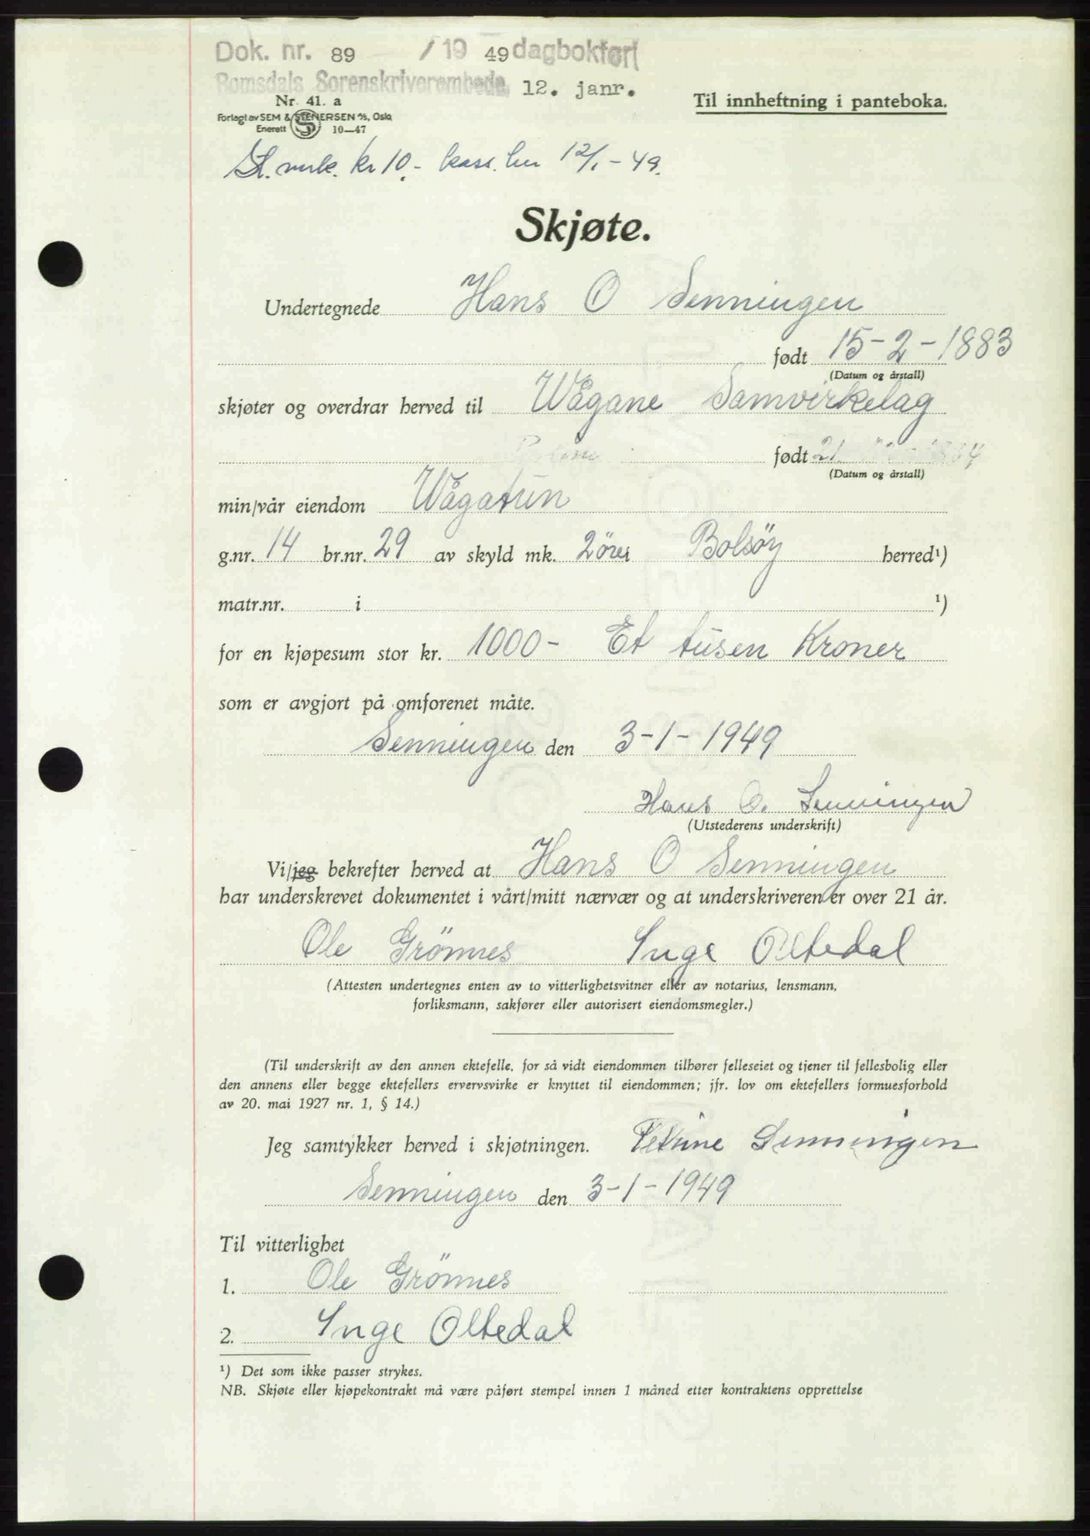 Dok. nr. 89 / 19 49 dagbokført
Romsdals Sorenskriverembede, 12. janr.
Nr. 41. a
Til innheftning i panteboka.
Forlagt av SEM & STENERSEN A/S, Oslo
Enerett 10—47
St. merk. kr 10.- kass. her 12/1-49.
Skjøte.
Undertegnede Hans O Senningen
født 15-2-1883
(Datum og årstall)
skjøter og overdrar herved til Wågane Samvirkelag
født 21
(Datum og årstall)
min/vår eiendom Wågatun
g.nr. 14 br.nr. 29 av skyld mk. 2 öre i Bolsöy herred¹)
matr.nr. i ¹)
for en kjøpesum stor kr. 1000- Et tusen Kroner
som er avgjort på omforenet måte.
Senningen den 3-1-1949
Hans O. Senningen
(Utstederens underskrift)
Vi/jeg bekrefter herved at Hans O Senningen
har underskrevet dokumentet i vårt/mitt nærvær og at underskriveren er over 21 år.
Ole Grönnes Inge Oltedal
(Attesten undertegnes enten av to vitterlighetsvitner eller av notarius, lensmann,
forliksmann, sakfører eller autorisert eiendomsmegler.)
(Til underskrift av den annen ektefelle, for så vidt eiendommen tilhører felleseiet og tjener til fellesbolig eller
den annens eller begge ektefellers ervervsvirke er knyttet til eiendommen; jfr. lov om ektefellers formuesforhold
av 20. mai 1927 nr. 1, § 14.)
Jeg samtykker herved i skjøtningen. Petrine Senningen
Senningen den 3-1-1949
Til vitterlighet
1. Ole Grönnes
2. Inge Oltedal
¹) Det som ikke passer strykes.
NB. Skjøte eller kjøpekontrakt må være påført stempel innen 1 måned etter kontraktens opprettelse